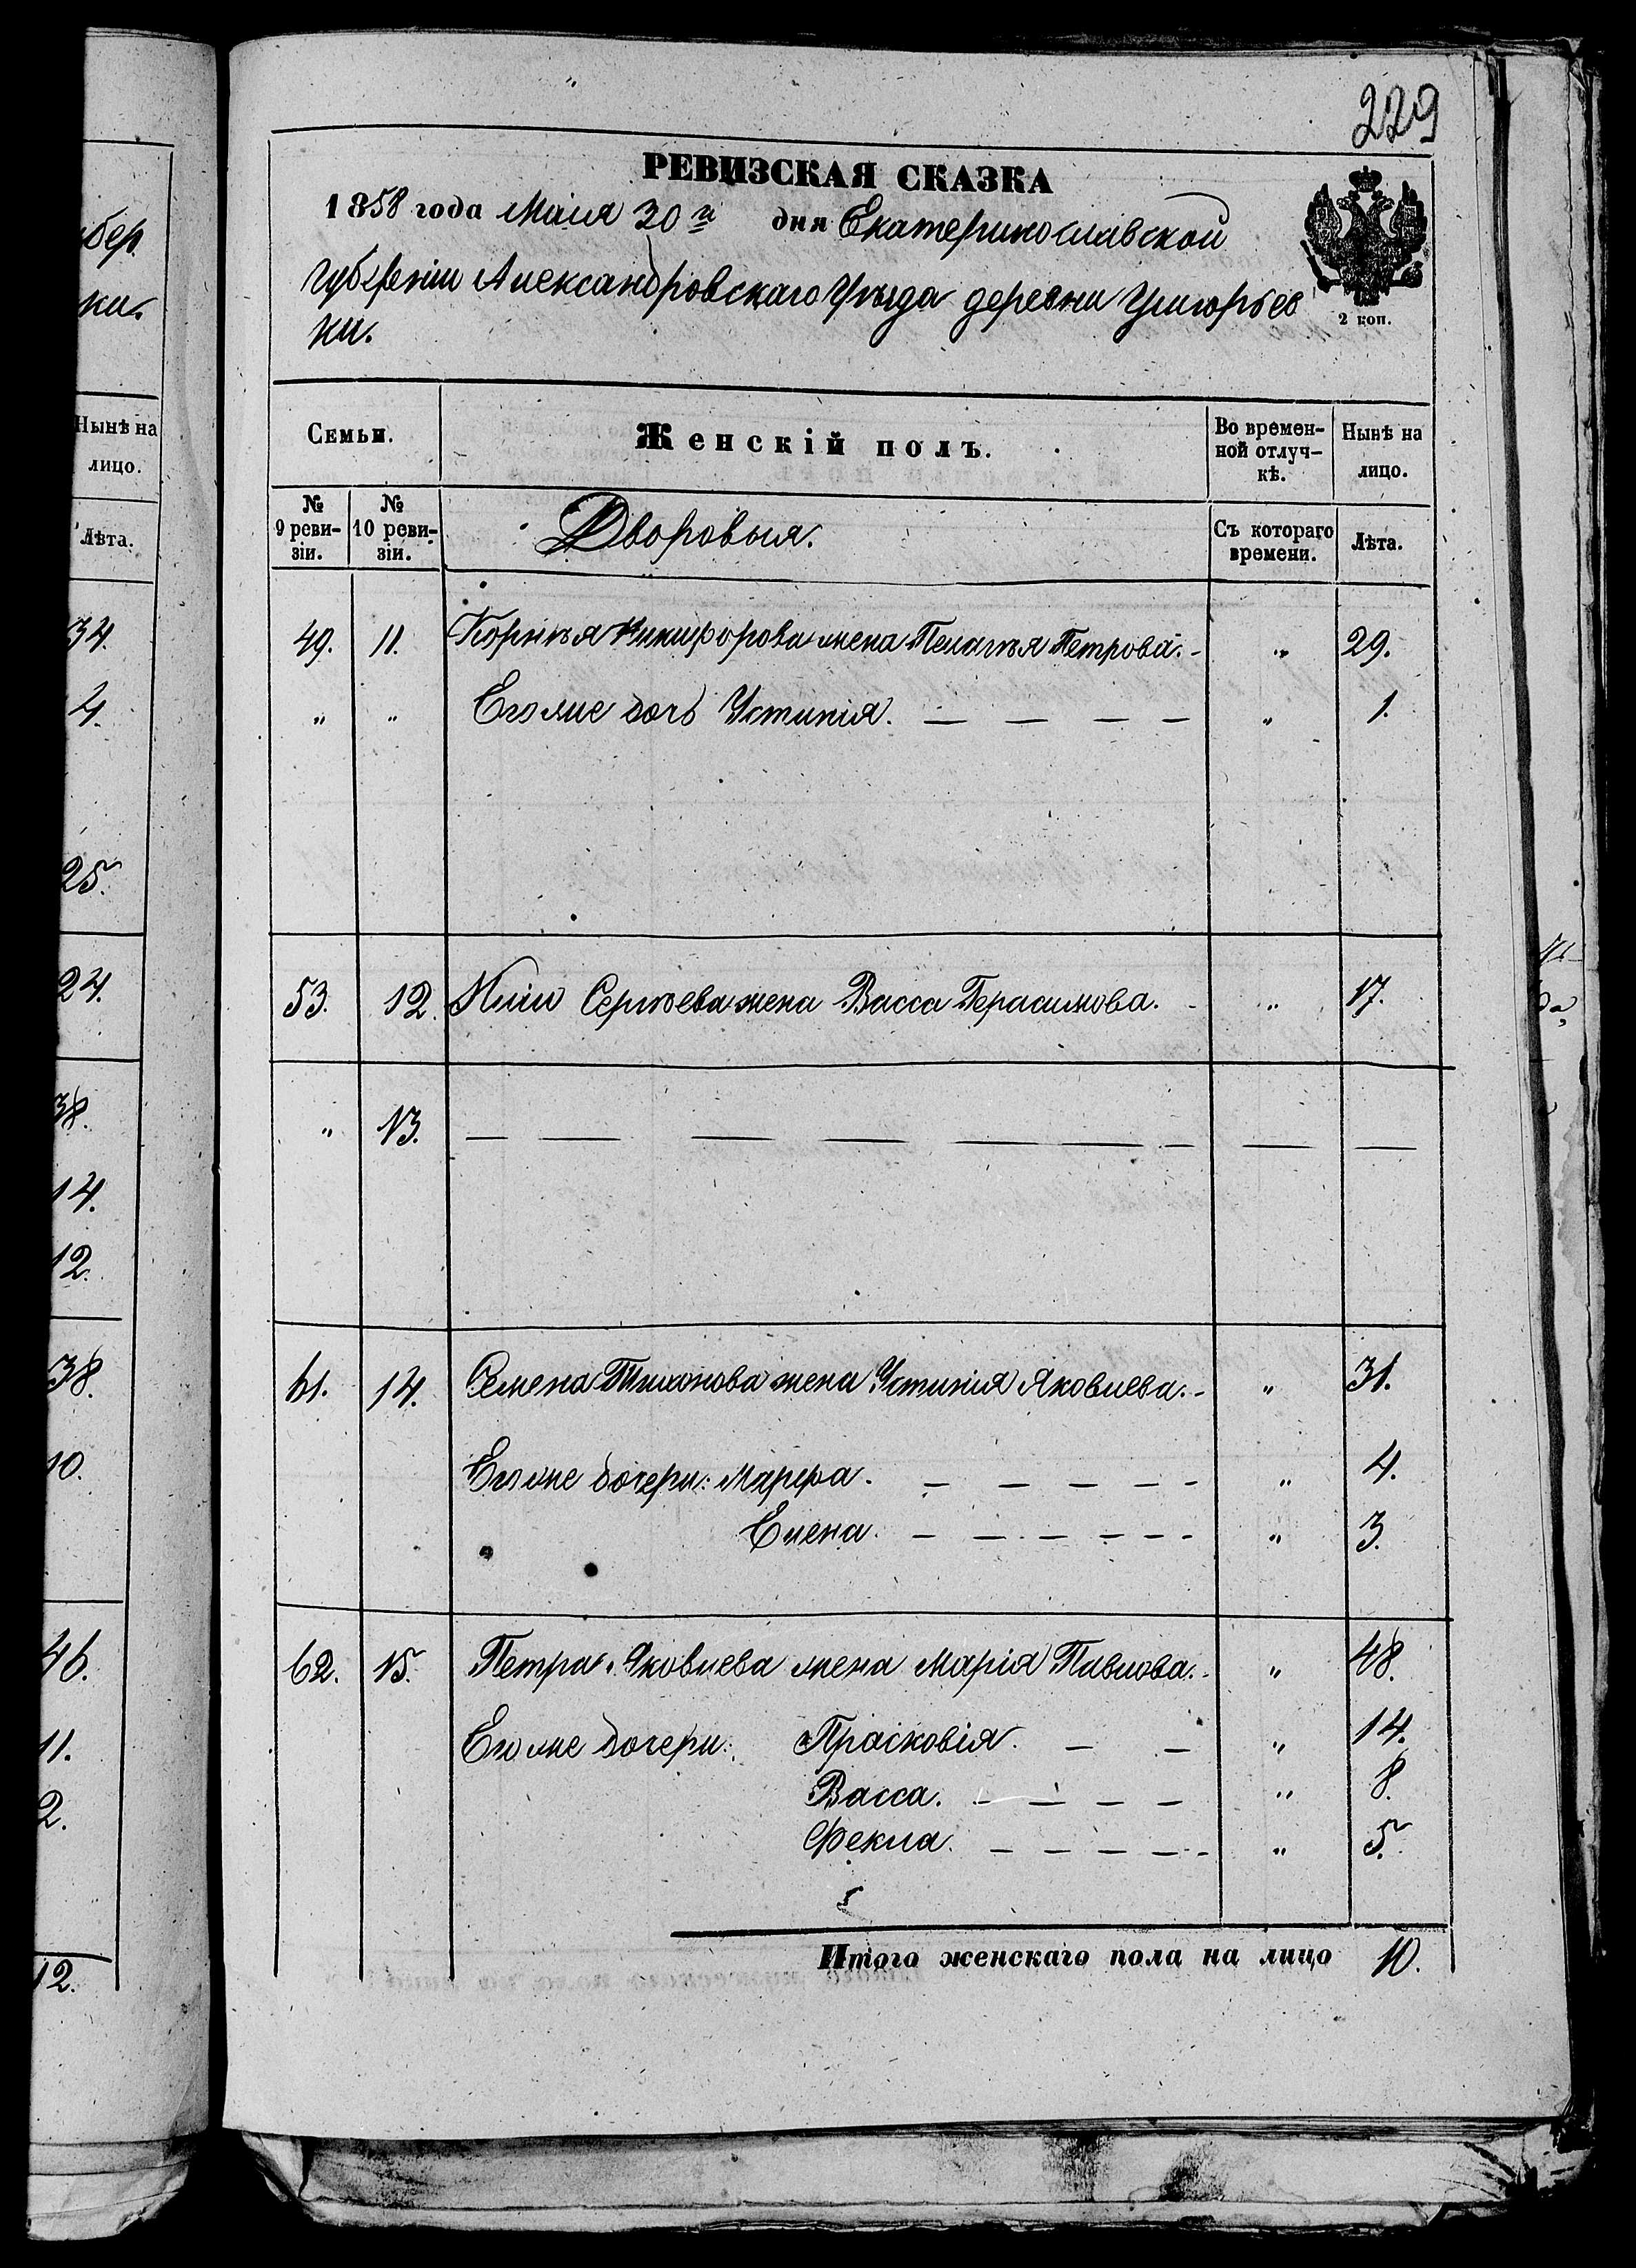 229
РЕВИЗСКАЯ СКАЗКА
1858 года Маія 30го дня Екатеринославской
Губерніи Александровскаго Уѣзда деревни Григорьев
ки.
2 коп.
Семьи. Женскій полъ. Во времен-ной отлуч-кѣ. Нынѣ на лицо.
№ 9 реви-зіи. № 10 реви-зіи. Дворовыя. Съ котораго времени. Лѣта.
49. 11. Корнѣя Никифорова жена Пелагѣя Петрова. - „ 29.
„ „ Его же дочь Устинія. — — — — „ 1.
53. 12. Сергѣева жена Васса Герасимова. - „ 17.
„ 13. — — — — — — — — —
61. 14. Семена Тихонова жена Устинія Яковлева. - „ 31.
Его же дочери: Марфа. — — — — - „ 4.
Елена. — — — — — - „ 3.
62. 15. Петра Яковлева жена Марія Павлова. - „ 48.
Его же дочери: Прасковія. — — „ 14.
Васса. — — — — „ 8.
Фекла. — — — — - „ 5.
Итого женскаго пола на лицо 10.
бер
ки.
Нынѣ на
лицо.
Лѣта.
34.
4.
25.
24.
38.
14.
12.
38.
10.
46.
11.
2.
12.